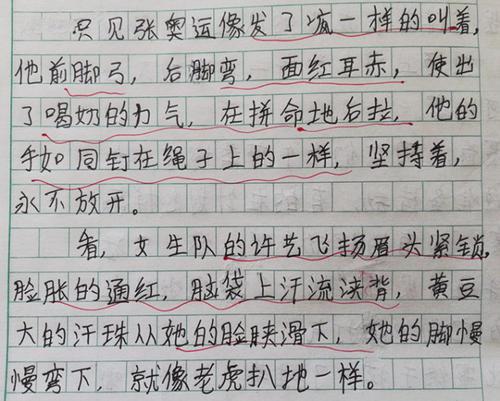 只见张奥运像发了疯一样的叫着,
他前脚弓,后脚弯,面红耳赤,使出
了喝奶的力气,在拼命地后拉,他的
手如同钉在绳子上的一样,坚持着,
永不放开。
看,女生队的许艺飞扬眉头紧锁,
脸胀的通红,脑袋上汗流浃背,黄豆
大的汗珠从她的脸颊滑下,她的脚慢
慢弯下,就像老虎扒地一样。